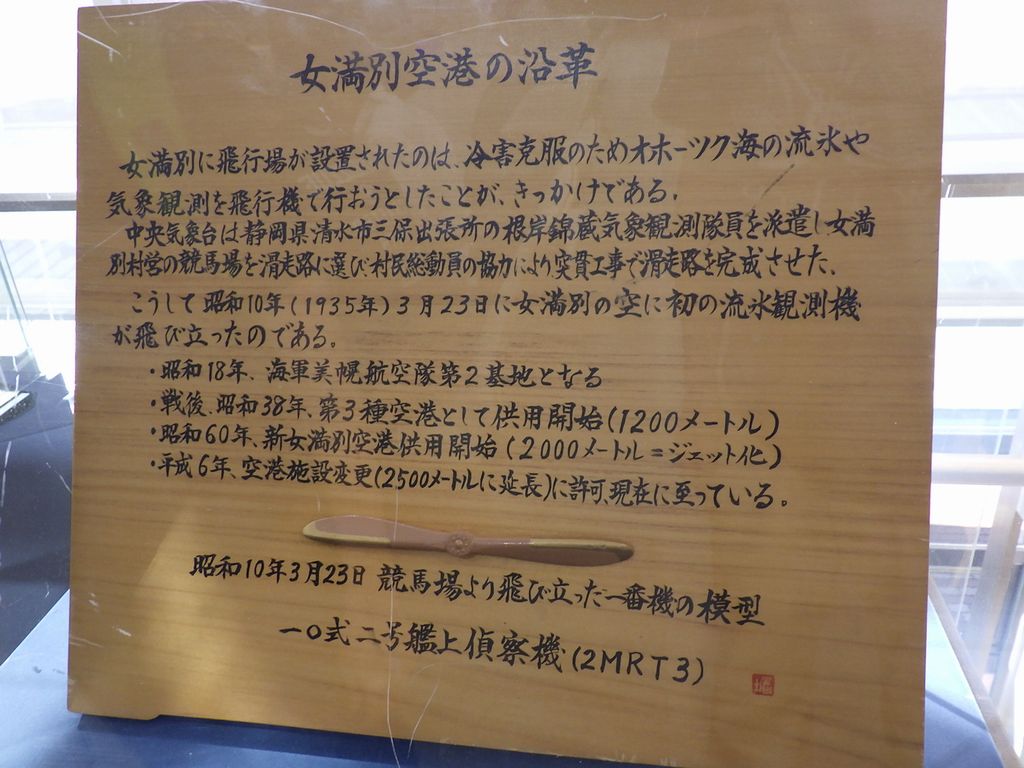 女満別空港の沿革
女満別に飛行場が設置されたのは、冷害克服のためオホーツク海の流氷や
気象観測を飛行機で行おうとしたことが、きっかけである。
中央気象台は静岡県清水市三保出張所の根岸錦蔵気象観測隊員を派遣し女満
別村営の競馬場を滑走路に選び村民総動員の協力により突貫工事で滑走路を完成させた。
こうして昭和10年(1935年)3月23日に女満別の空に初の流氷観測機
が飛び立ったのである。
・昭和18年、海軍美幌航空隊第2基地となる
・戦後、昭和38年、第3種空港として供用開始(1200メートル)
・昭和60年、新女満別空港供用開始(2000メートル=ジェット化)
・平成6年、空港施設変更(2500メートルに延長)に許可、現在に至っている。
昭和10年3月23日 競馬場より飛び立った一番機の模型
一〇式二号艦上偵察機(2MRT3)